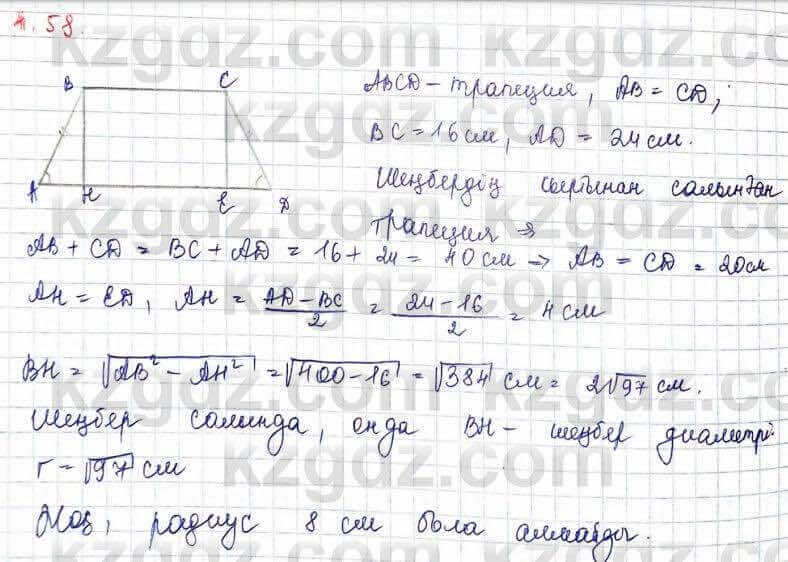 4. 58.
B C
A H E D
ABCD - трапеция, AB = CD;
BC = 16 см, AD = 24 см.
Шеңбердің сыртынан салынған
трапеция ⇒
AB + CD = BC + AD = 16 + 24 = 40 см → AB = CD = 20 см
AH = ED, AH = (AD - BC)/2 = (24 - 16)/2 = 4 см
BH = √(AB² - AH²) = √(400 - 16) = √384 см = 2√97 см.
Шеңбер салында, онда BH - шеңбер диаметрі
r = √97 см
Жоқ, радиус 8 см бола алмайды.
kzgdz.com
kzgdz.com
kzgdz.com
kzgdz.com
kzgdz.com
kzgdz.com